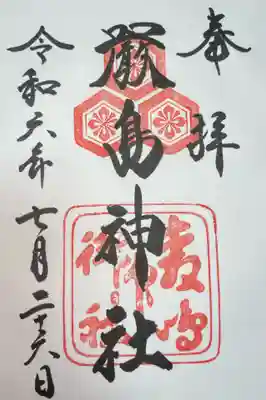 奉拝
厳島神社
令和六年七月二十六日